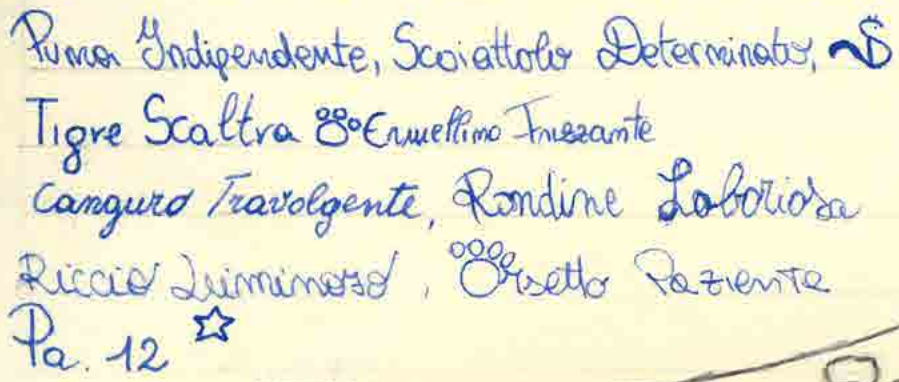 Puma Indipendente, Scoiattolo Determinato,
Tigre Scaltra Ermellino Frizzante
Canguro Travolgente, Rondine Laboriosa
Riccio Luminoso, Orsetto Paziente
Pa. 12